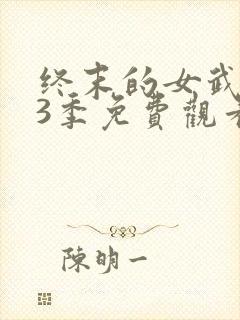 终末的女武
3季免費觀看
陳明一